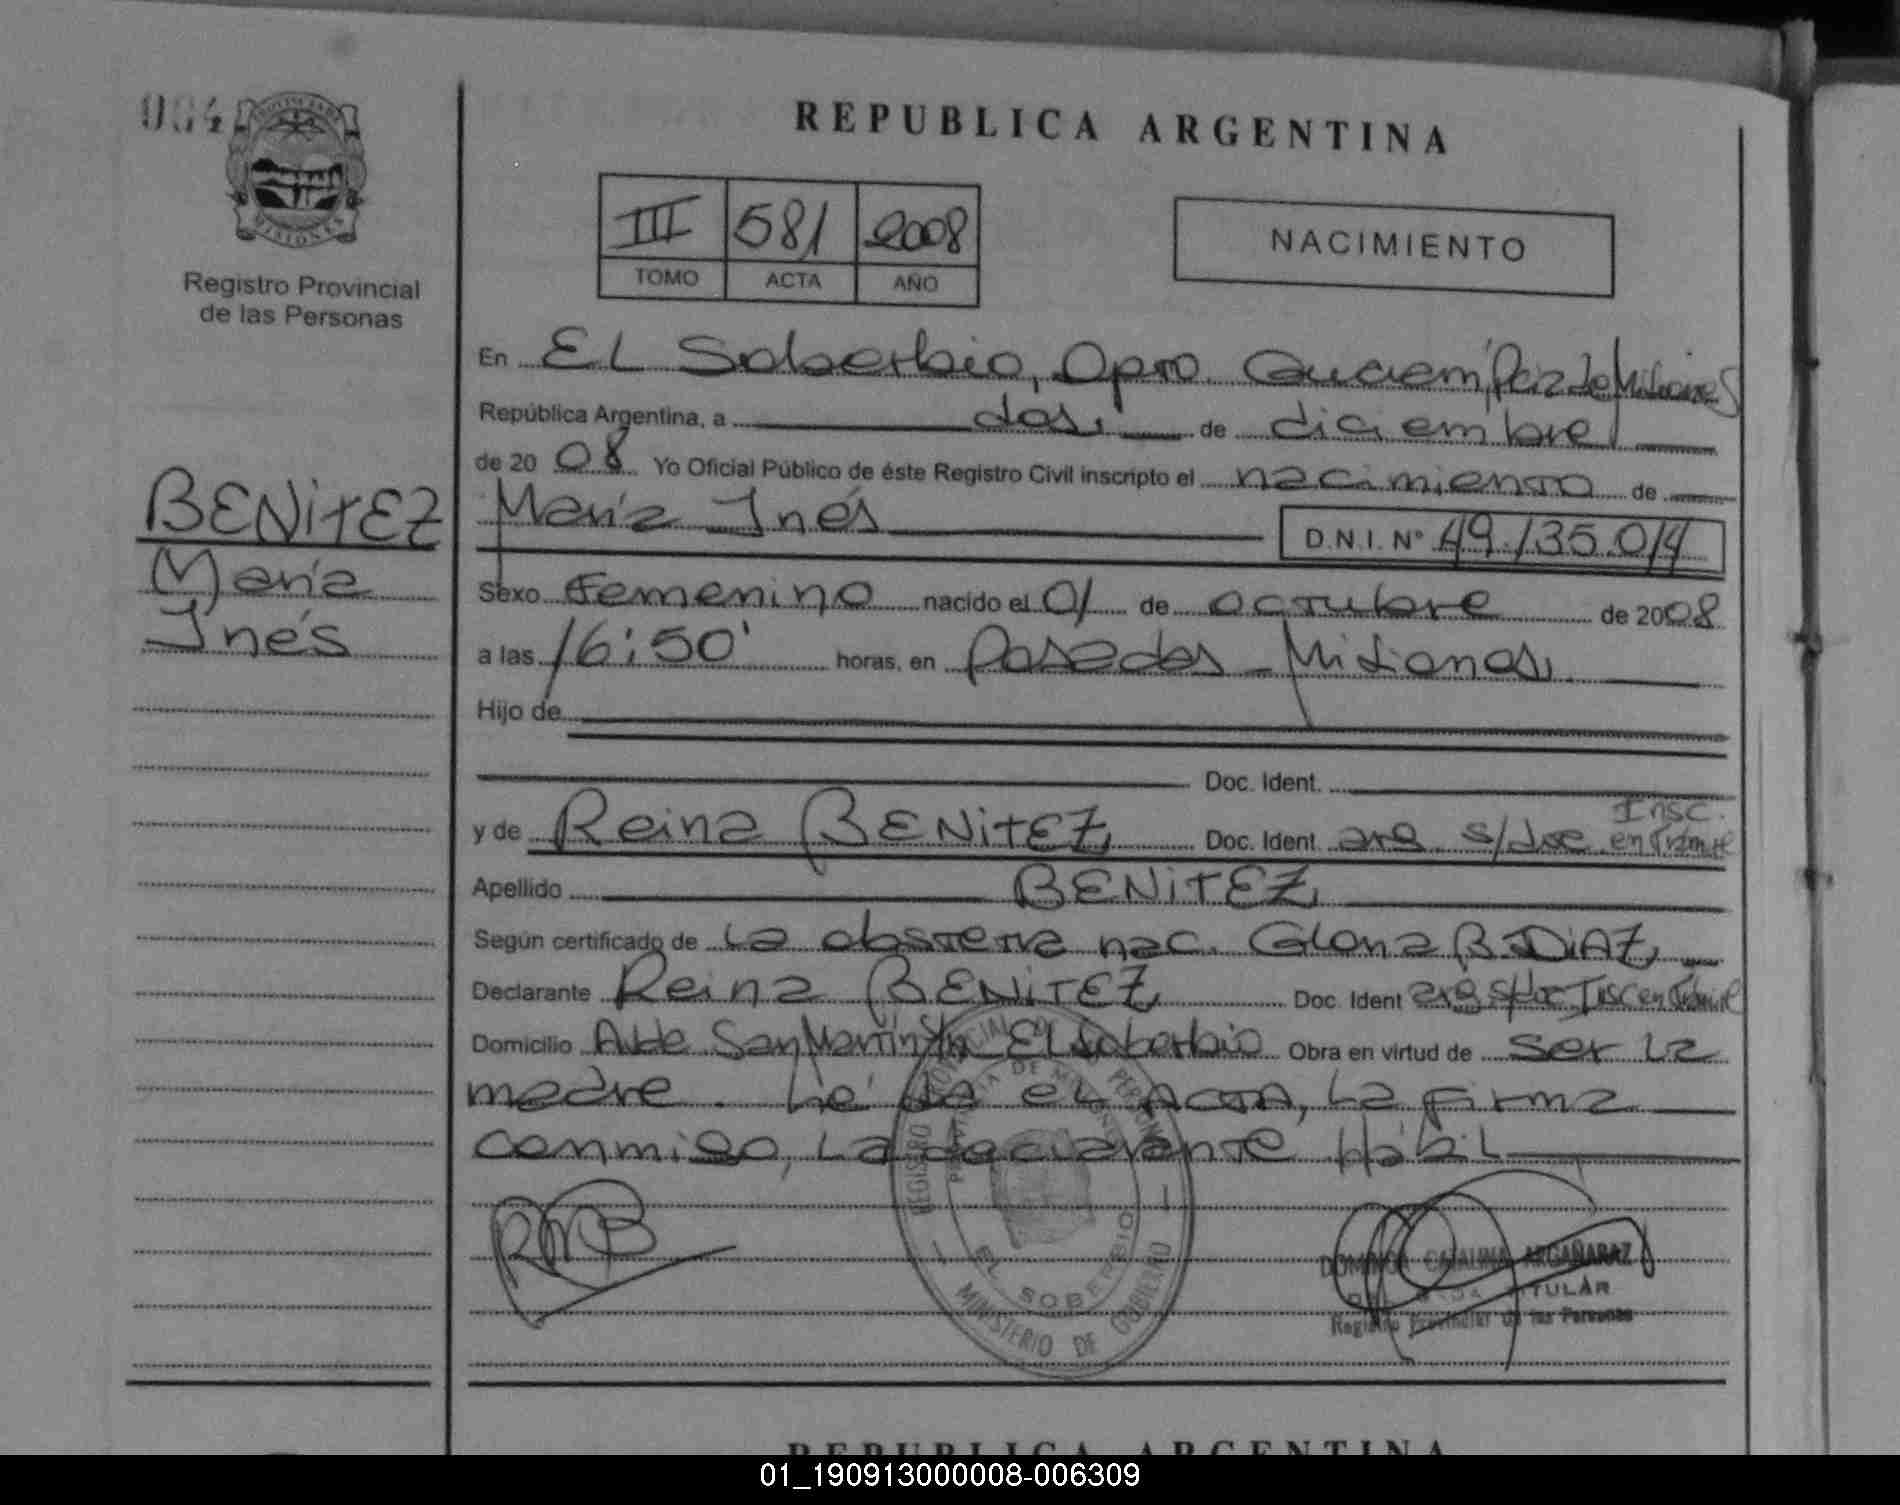 004
PROVINCIA DE
MISIONES
Registro Provincial
de las Personas
REPUBLICA ARGENTINA
III 581 2008
TOMO ACTA AÑO
NACIMIENTO
En El Soberbio, Dpto. Guaraní, Pcia de Misiones
República Argentina, a dos, de diciembre
de 20 08 Yo Oficial Público de éste Registro Civil inscripto el nacimiento de
María Inés
D.N.I. Nº 49.135.014
BENiTEZ
María
Inés
Sexo Femenino nacido el 01 de octubre de 2008
a las 16:50' horas, en Posadas - Misiones,
Hijo de
Doc. Ident.
y de Reina BENiTEZ, Doc. Ident. arg s/doc Insc. en Trámite
Apellido BENiTEZ,
Según certificado de la obstetra nac. Gloria B. DiAZ,
Declarante Reina BENiTEZ, Doc. Ident arg s/doc Insc en Trámite
Domicilio Av. de San Martín s/n El Soberbio Obra en virtud de ser la
madre. Leída el Acta, la firma
conmigo, la declarante Hábil
RMB
REGISTRO PROVINCIAL DE LAS PERSONAS
PROVINCIA DE MISIONES
EL SOBERBIO
MINISTERIO DE GOBIERNO
CATALINA ARGAÑARAZ
TITULAR
Registro Provincial de las Personas
REPUBLICA ARGENTINA
01_190913000008-006309